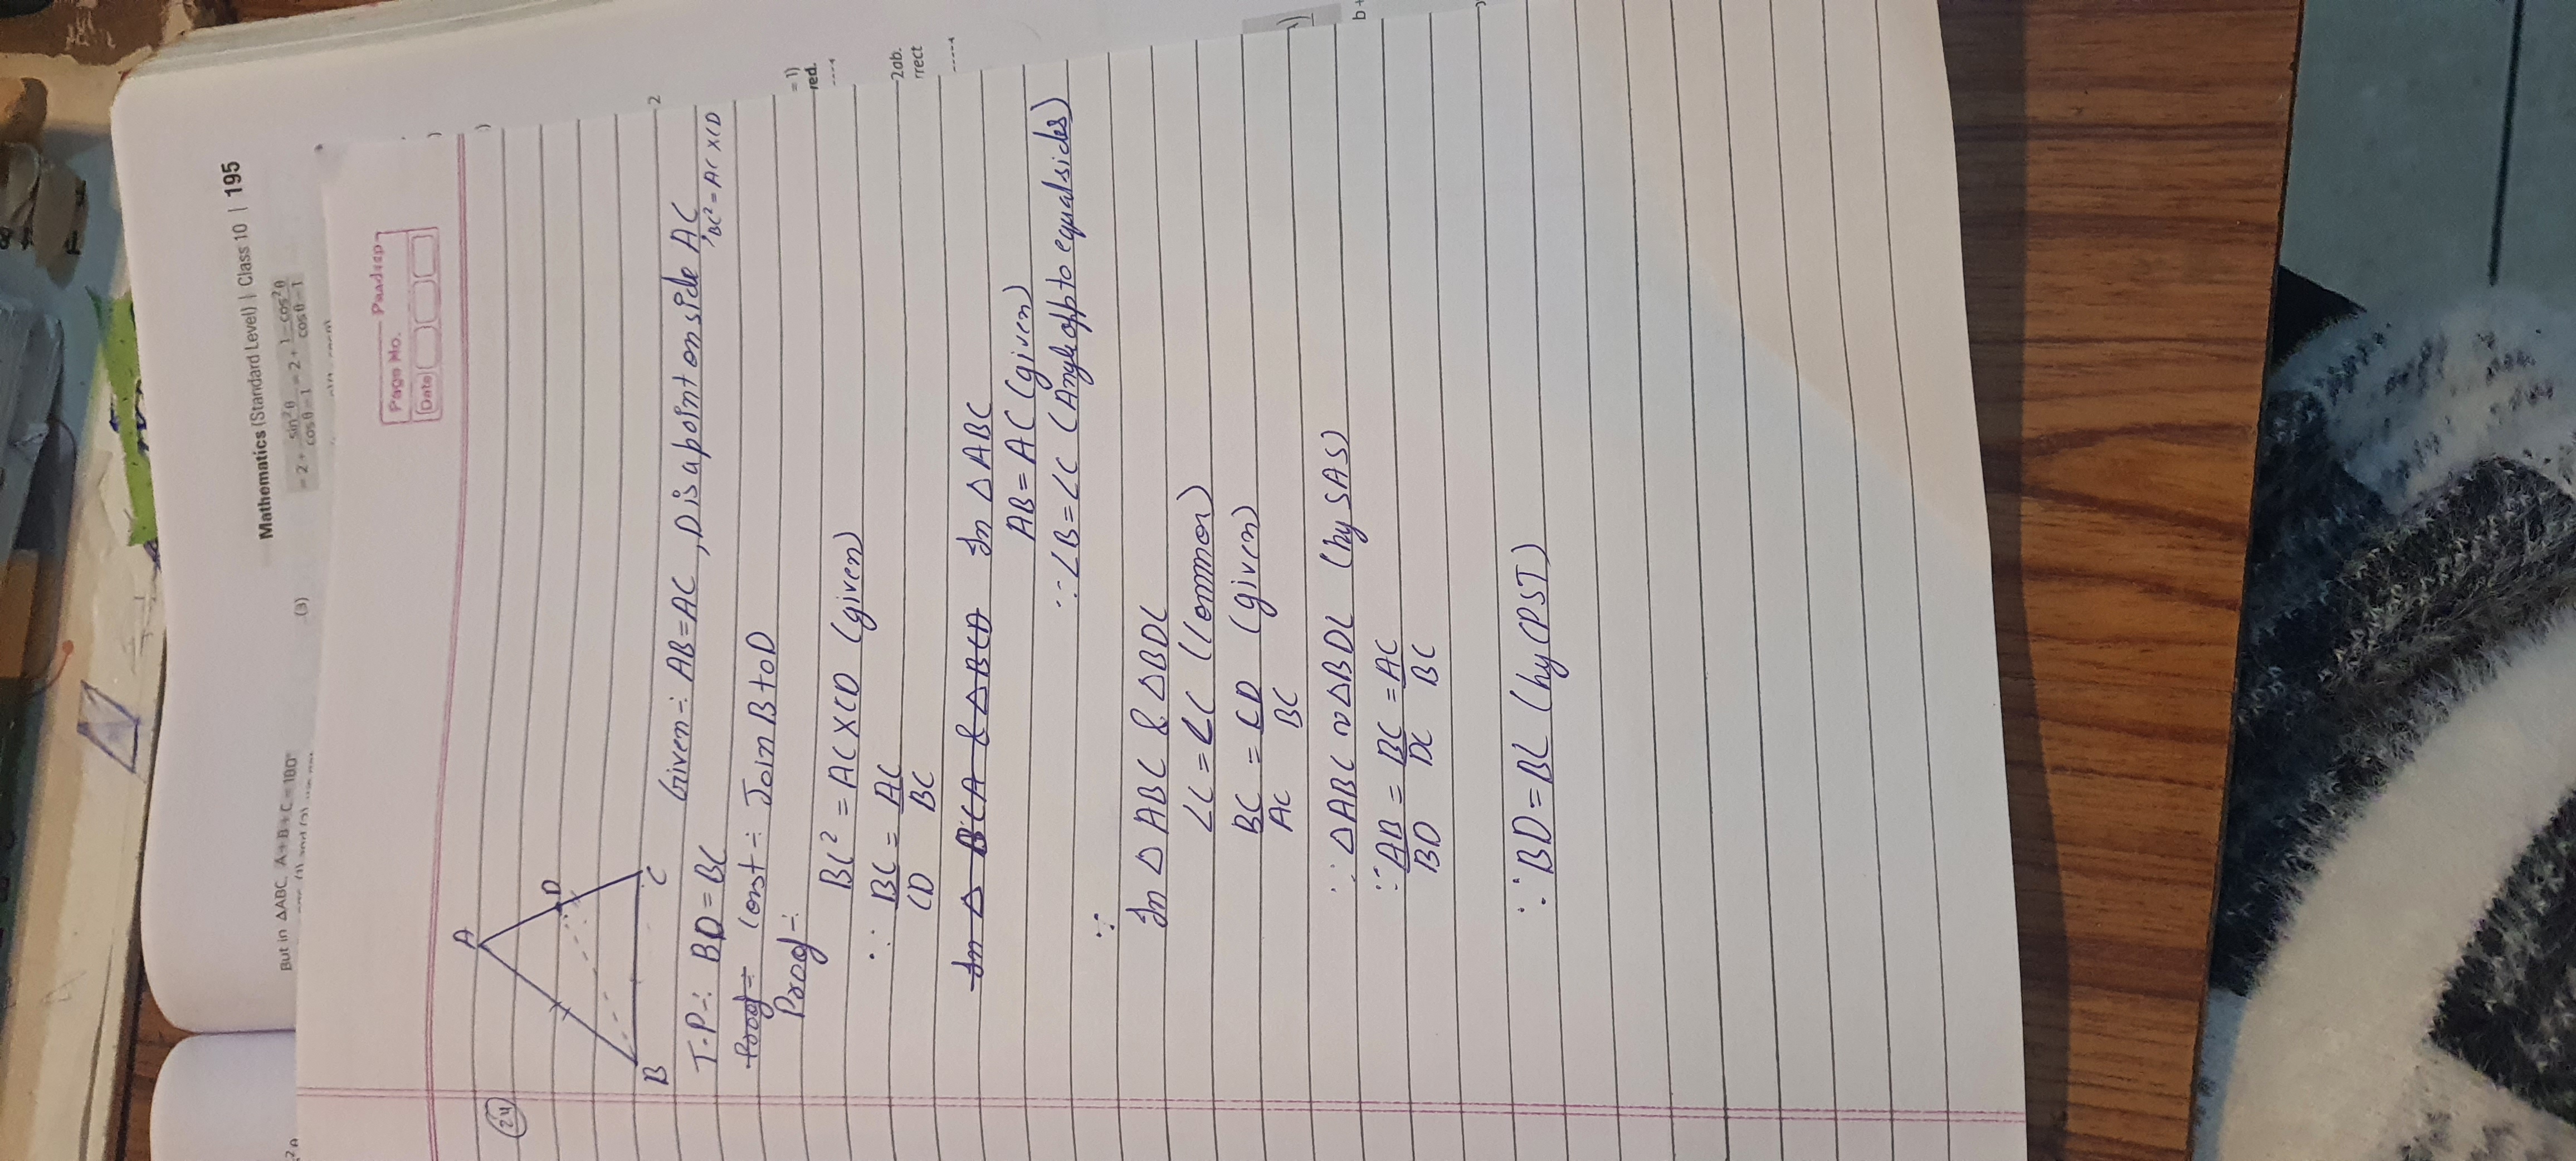 Mathematics (Standard Level) | Class 10 | 195
= 2 + sin²θ/cosθ − 1 = 2 + 1 − cos²θ/cosθ − 1
(3)
But in ΔABC, A + B + C = 180°
Paadeep
Page No.
Date
= 1)
red.
2ab.
rrect
b +
(24)
A
D
B
C
Given:- AB = AC, D is a point on side AC
, BC² = AC × CD
T.P:- BD = BC
Proof:- Const:- Join B to D
Proof:-
BC² = AC × CD (given)
∴ BC/CD = AC/BC
In Δ BCA & Δ BCD In Δ ABC
AB = AC (given)
∴ ∠B = ∠C (Angle opp to equal sides)
∴
In Δ ABC & Δ BDC
∠C = ∠C (Common)
BC/AC = CD/BC (given)
∴ Δ ABC ~ Δ BDC (by SAS)
∴ AB/BD = BC/DC = AC/BC
∴ BD = BC (by CPST)